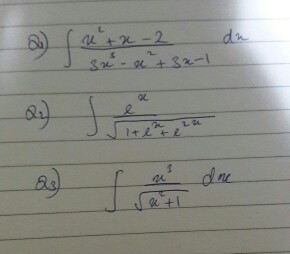 Q1) ∫ (x² + x - 2)/(3x³ - x² + 3x - 1) dx
Q2) ∫ eˣ/√(1 + eˣ + e²ˣ)
Q3) ∫ x³/√(x² + 1) dx